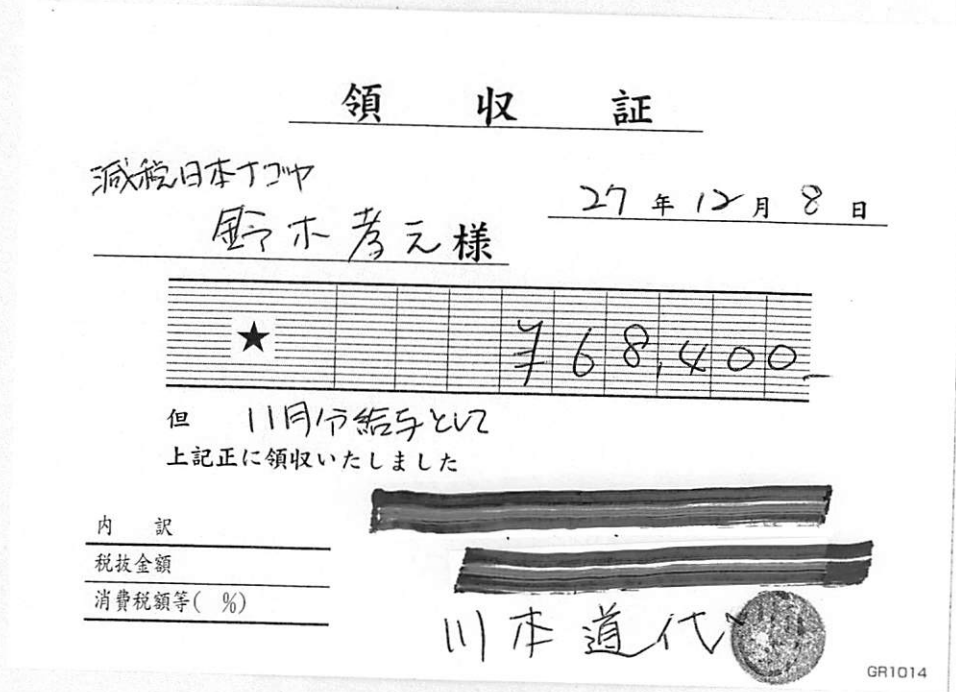 領収証
減税日本ナゴヤ
27年12月8日
鈴木孝元様
★ ¥68,400-
但 11月分給与として
上記正に領収いたしました
内訳
税抜金額
消費税額等( %)
川本道代
GR1014